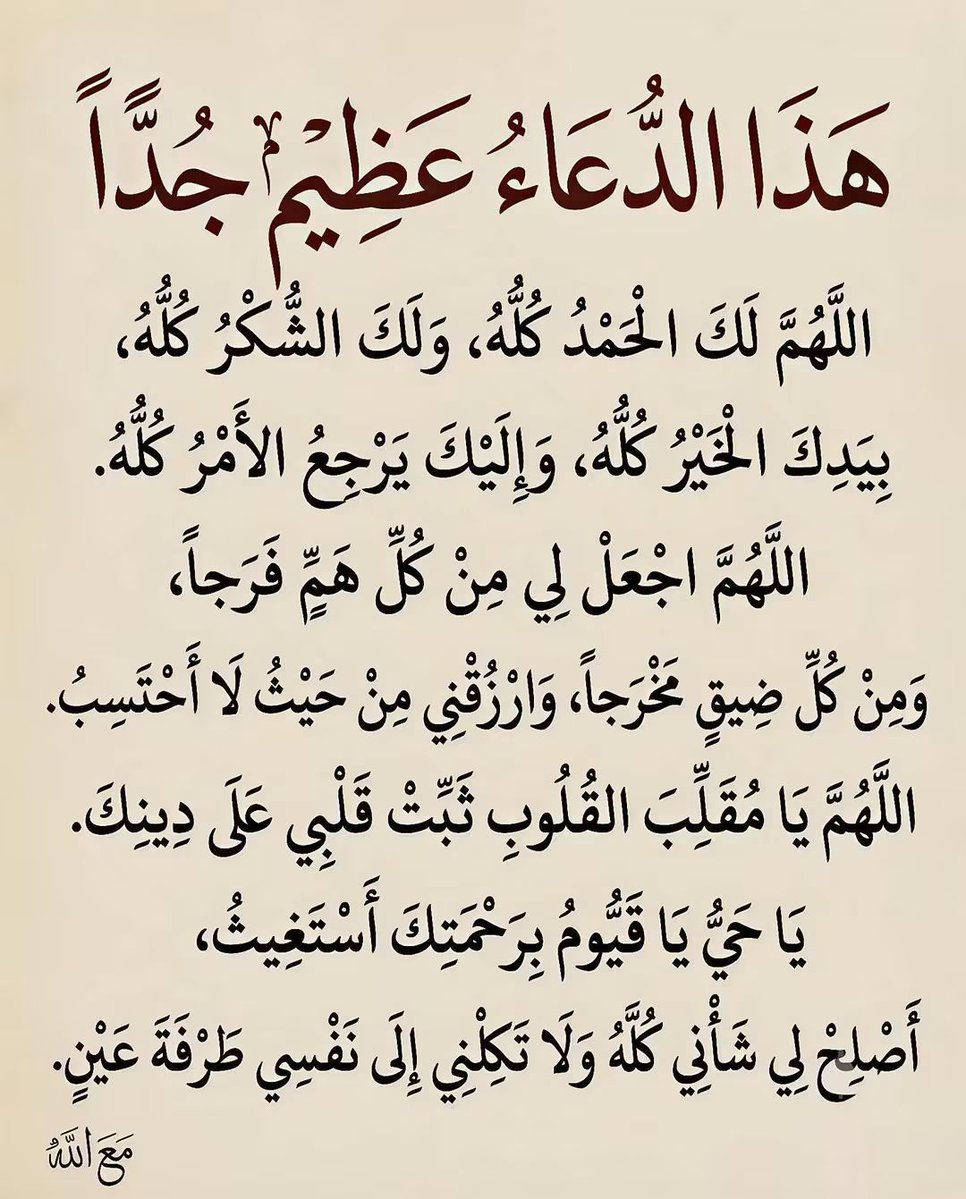 هَذَا الدُّعَاءُ عَظِيْم جُدَّاً
اللَّهُمَّ لَكَ الْحَمْدُ كُلُّهُ، وَلَكَ الشُّكْرُ كُلُّهُ،
بِيَدِكَ الْخَيْرُ كُلُّهُ، وَإِلَيْكَ يَرْجِعُ الأَمْرُ كُلُّهُ.
اللَّهُمَّ اجْعَلْ لِي مِنْ كُلِّ هَمٍّ فَرَجاً،
وَمِنْ كُلِّ ضِيقٍ مَخْرَجاً، وَارْزُقْنِي مِنْ حَيْثُ لَا أَحْتَسِبُ.
اللَّهُمَّ يَا مُقَلِّبَ القُلُوبِ ثَبِّتْ قَلْبِي عَلَى دِينِكَ.
يَا حَيُّ يَا قَيُّومُ بِرَحْمَتِكَ أَسْتَغِيثُ،
أَصْلِحْ لِي شَأْنِي كُلَّهُ وَلَا تَكِلْنِي إِلَى نَفْسِي طَرْفَةَ عَيْنٍ.
مَعَ اللَّهُ